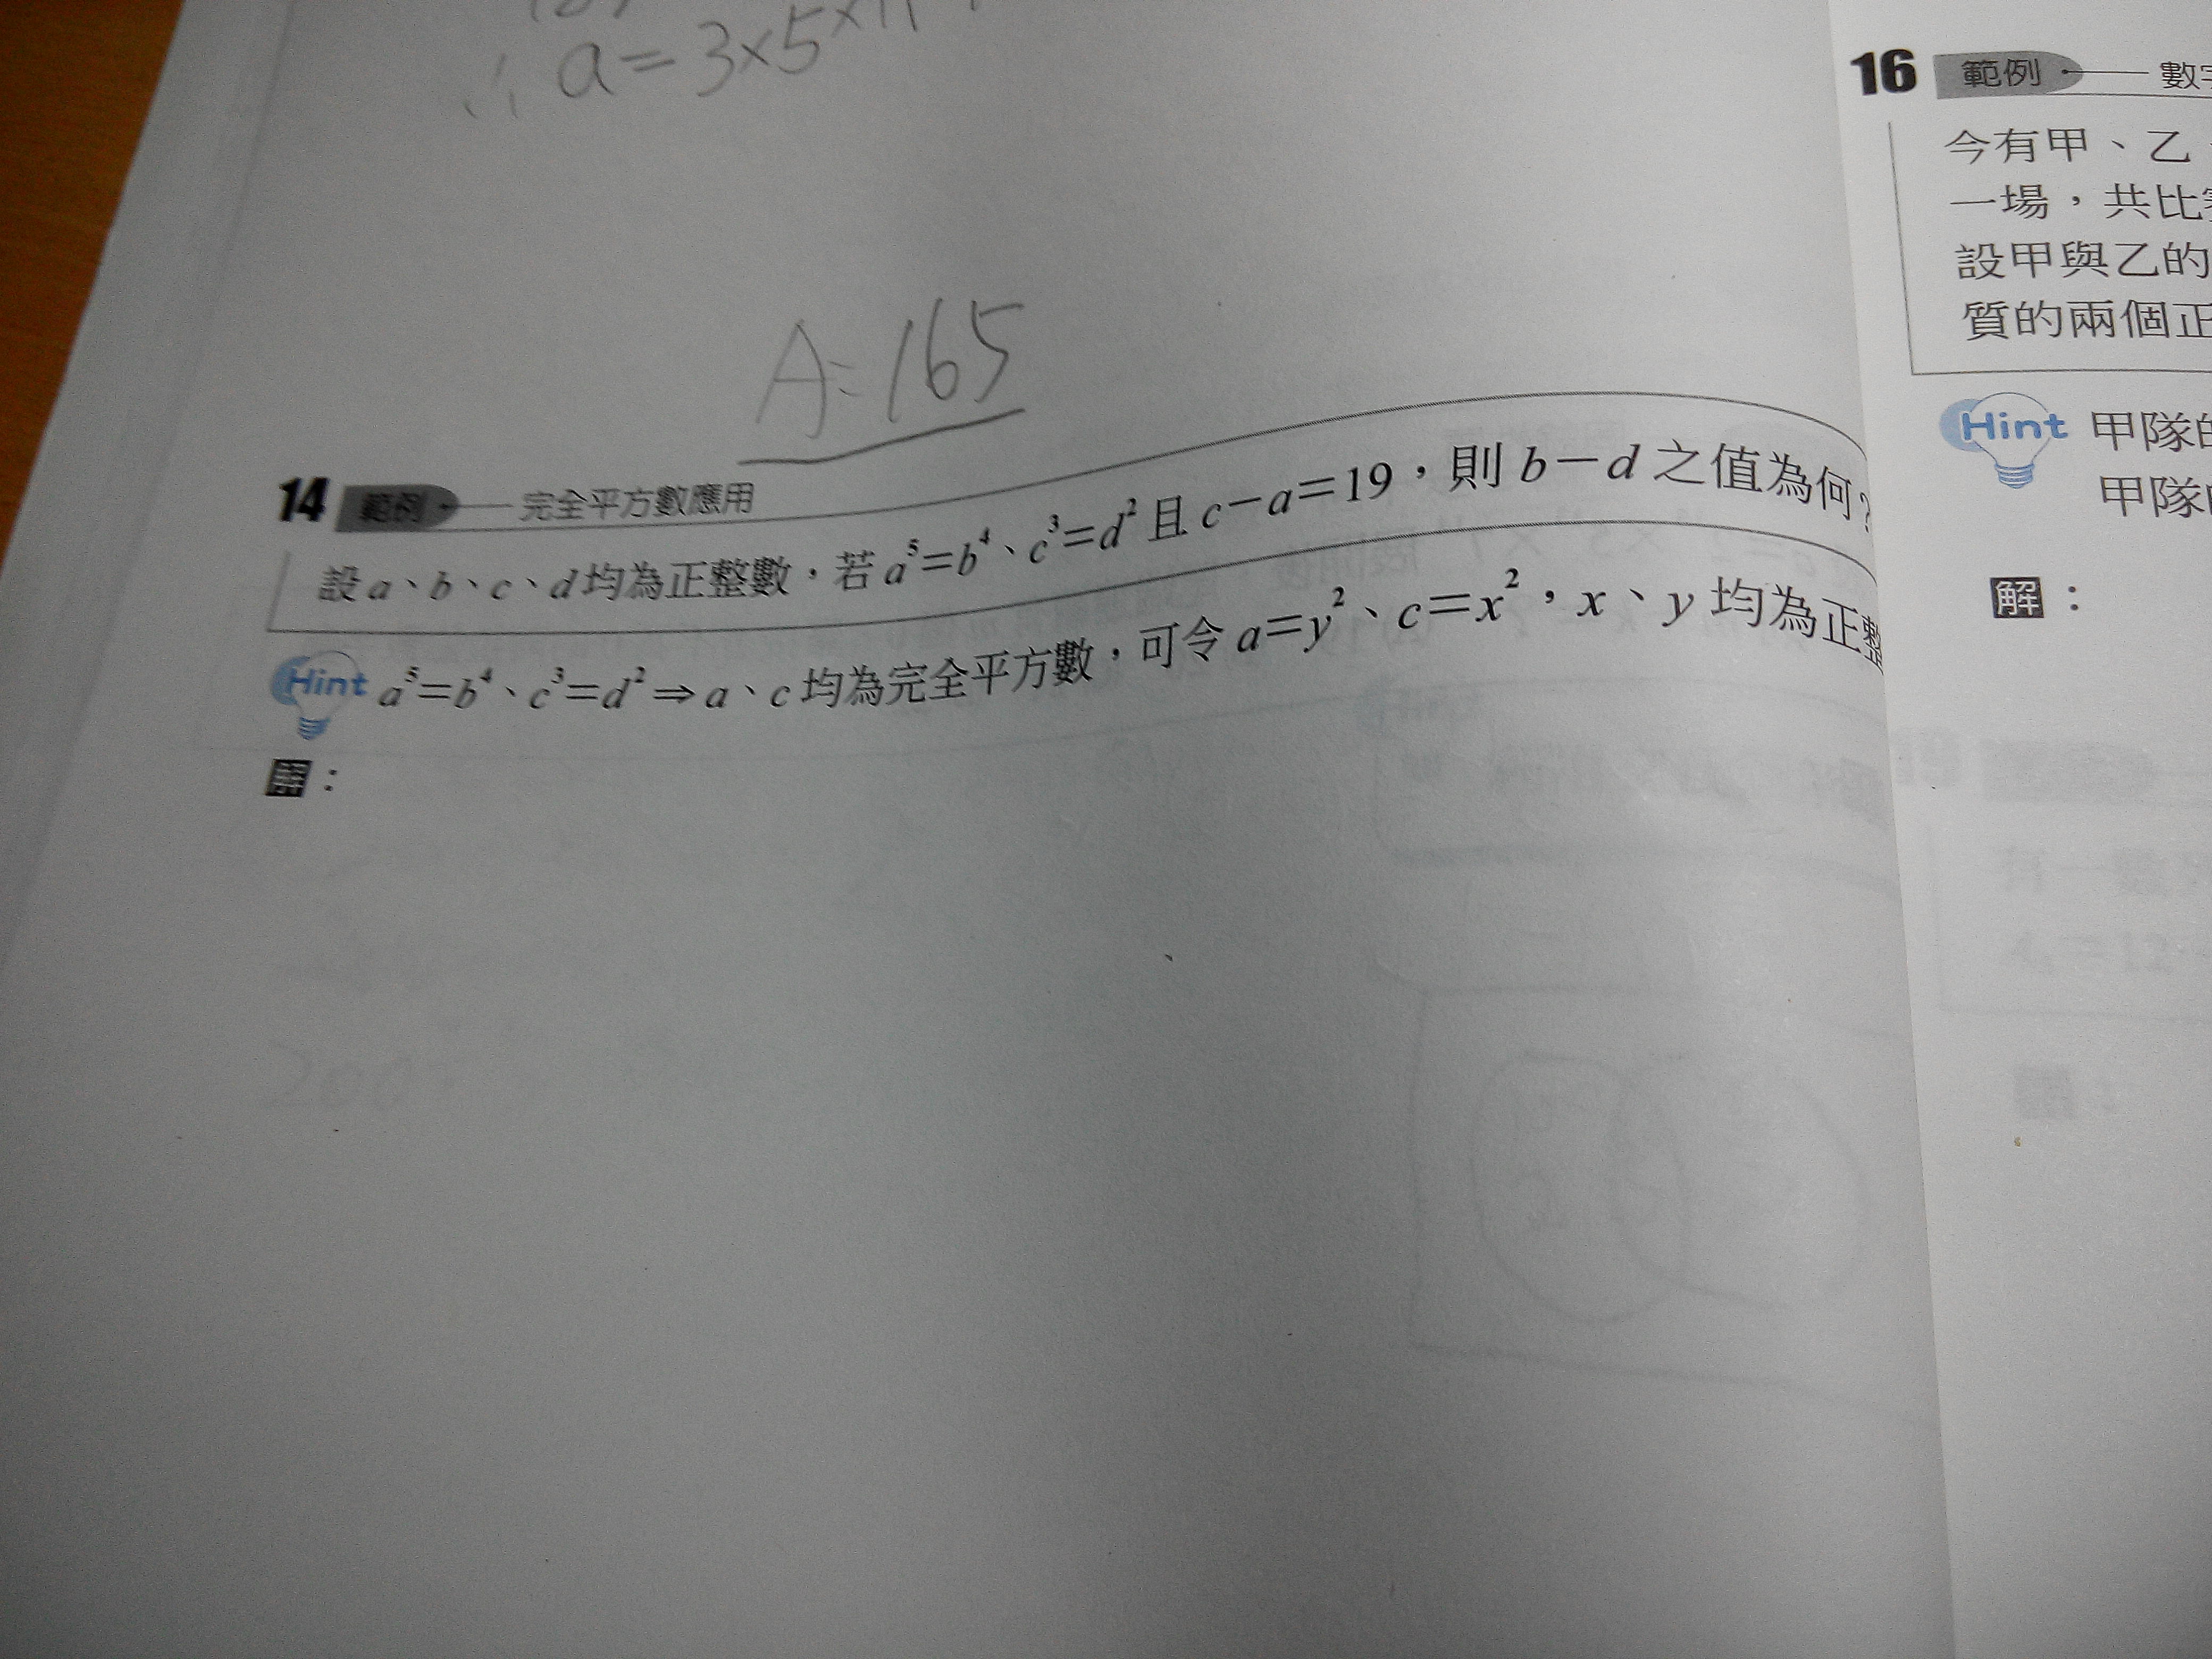 ∴ a=3×5×11
A:165
14 範例 完全平方數應用
設a、b、c、d均為正整數，若a⁵=b⁴、c³=d²且c-a=19，則b-d之值為何？
Hint a⁵=b⁴、c³=d²⇒a、c均為完全平方數，可令a=y²、c=x²，x、y均為正整
解：
16 範例 數字
今有甲、乙
一場，共比賽
設甲與乙的
質的兩個正
Hint 甲隊的
甲隊
解：